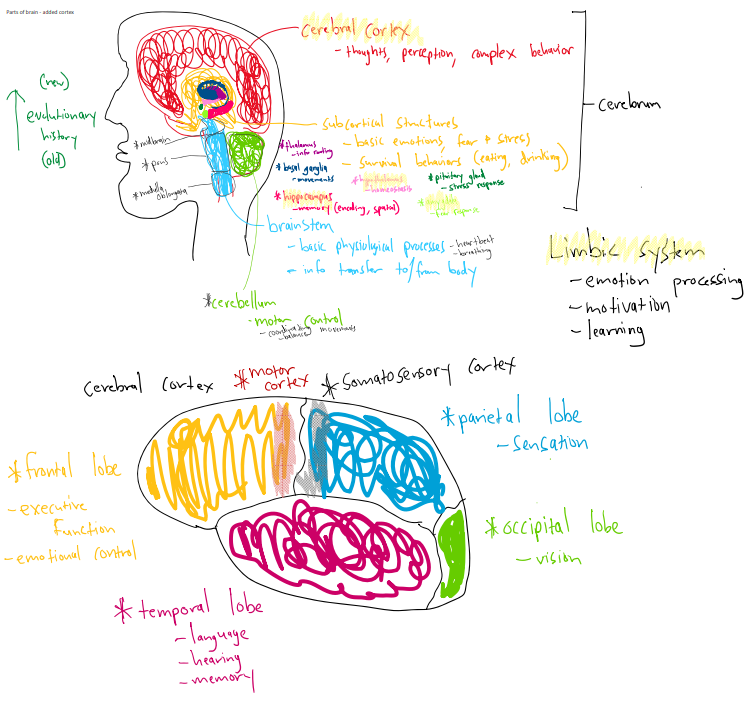 Parts of brain - added cortex
cerebral cortex
- thoughts, perception, complex behavior
(new)
evolutionary
history
(old)
cerebrum
subcortical structures
- basic emotions, fear + stress
- survival behaviors (eating, drinking)
*midbrain
*pons
*medulla
oblongata
*thalamus
- info routing
*basal ganglia
- movements
*hypothalamus
- homeostasis
*pituitary gland
- stress response
*hippocampus
- memory (encoding, spatial)
*amygdala
- fear response
brainstem
- basic physiological processes
- heartbeat
- breathing
- info transfer to/from body
Limbic system
- emotion processing
- motivation
- learning
*cerebellum
- motor control
- coordinating movements
- balance
cerebral cortex
*motor
cortex
*somatosensory cortex
*parietal lobe
- sensation
*frontal lobe
- executive
function
- emotional control
*occipital lobe
- vision
*temporal lobe
- language
- hearing
- memory